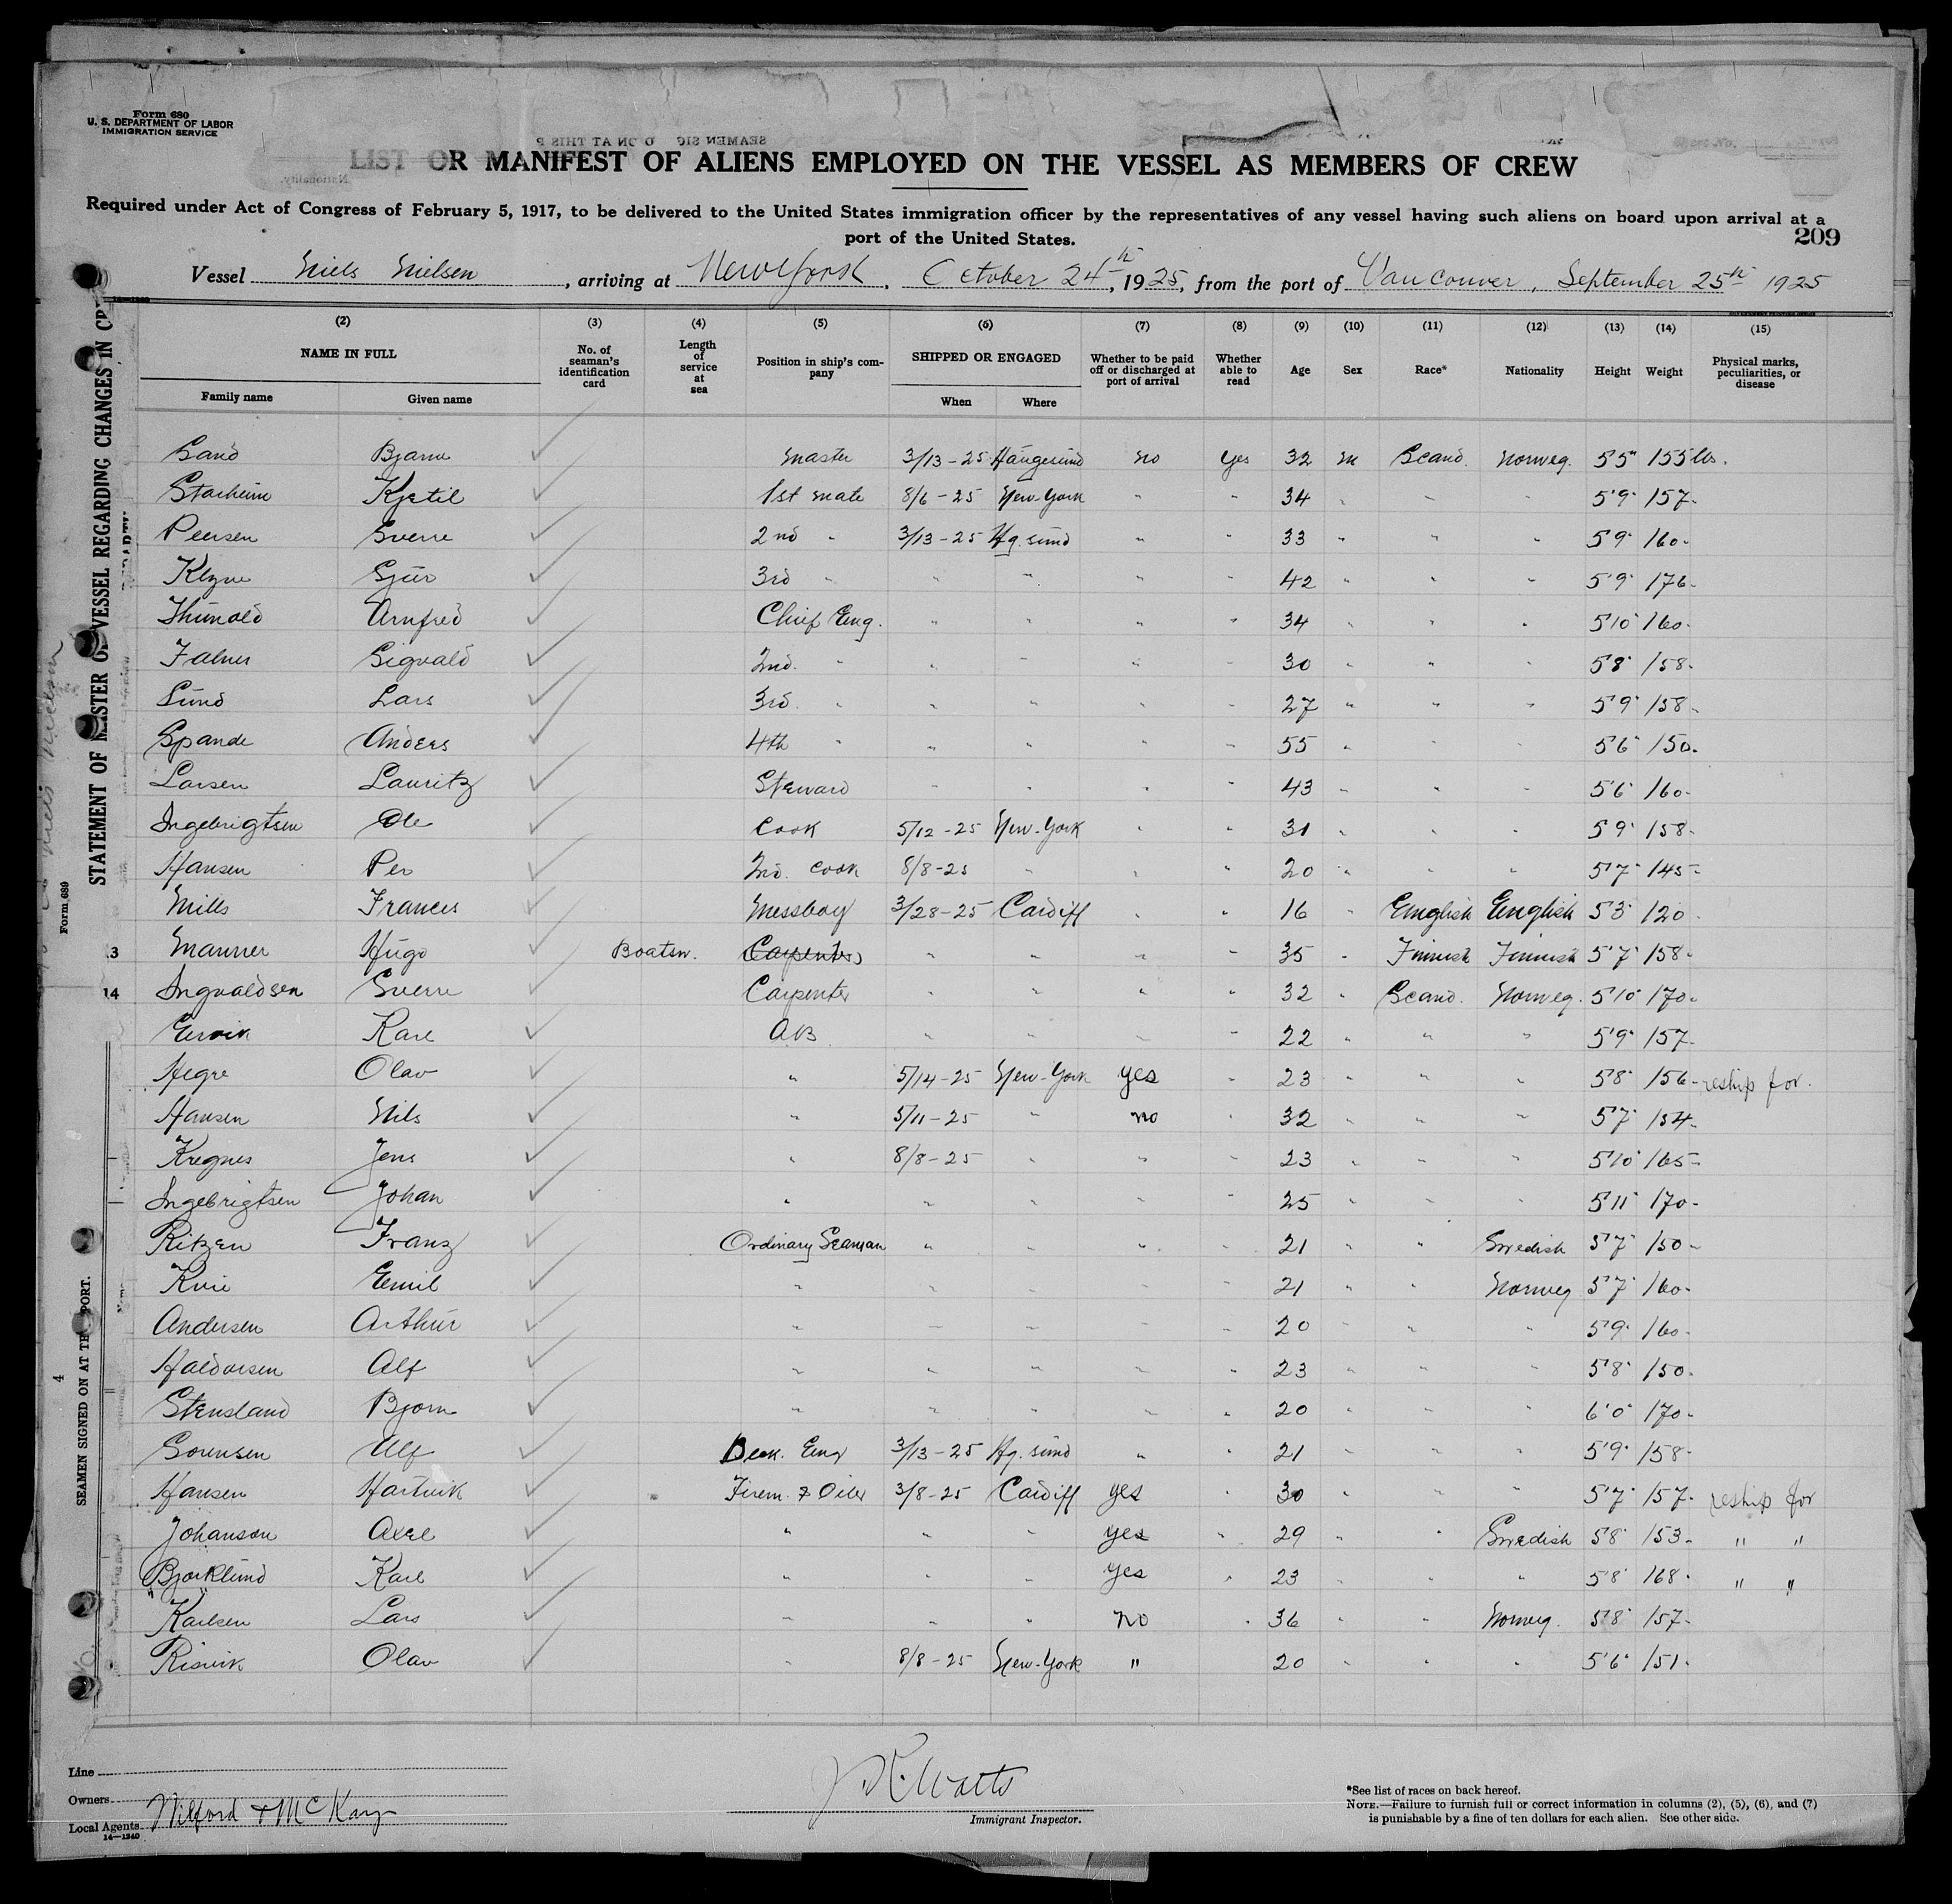 Form 680
U. S. DEPARTMENT OF LABOR
IMMIGRATION SERVICE
LIST OR MANIFEST OF ALIENS EMPLOYED ON THE VESSEL AS MEMBERS OF CREW
Required under Act of Congress of February 5, 1917, to be delivered to the United States immigration officer by the representatives of any vessel having such aliens on board upon arrival at a
port of the United States.
209
Vessel Niels Nielsen, arriving at New York, October 24th, 1925, from the port of Vancouver, September 25th 1925
(2) (3) (4) (5) (6) (7) (8) (9) (10) (11) (12) (13) (14) (15)
NAME IN FULL No. of seaman's identification card Length of service at sea Position in ship's company SHIPPED OR ENGAGED Whether to be paid off or discharged at port of arrival Whether able to read Age Sex Race* Nationality Height Weight Physical marks, peculiarities, or disease
Family name Given name When Where
Sand Bjarne master 3/13-25 Haugesund no Yes 32 m Scand. Norweg. 5'5" 155 lbs.
Starheim Kjetil 1st mate 8/6-25 New-York " " 34 " " " 5'9" 157-
Peersen Sverre 2nd " 3/13-25 Hg.sund " " 33 " " " 5'9" 160-
Sjur 3rd " " " " " 42 " " " 5'9" 176-
Thunold Arnfred Chief Eng. " " " " 34 " " " 5'10" 160-
Falner Sigvald 2nd. " " " " " 30 " " " 5'8" 158-
Sund Lars 3rd. " " " " " 27 " " " 5'9" 158-
Spande Anders 4th " " " " " 55 " " " 5'6" 150-
Larsen Lauritz Steward " " " " 43 " " " 5'6" 160-
Ingebrigtsen Ole Cook 5/12-25 New-York " " 31 " " " 5'9" 158-
Hansen Per 2nd. cook 8/8-25 " " " 20 " " " 5'7" 145-
Mills Frances Messboy 3/28-25 Cardiff " " 16 " English English 5'3" 120-
13 Manner Hugo Boatsw. Carpenter " " " " 35 " Finnish Finnish 5'7" 158-
14 Ingvaldsen Sverre Carpenter " " " " 32 " Scand. Norweg. 5'10" 170-
Ervik Kare AB " " " " 22 " " " 5'9" 157-
Hegre Olav " 5/14-25 New-York yes " 23 " " " 5'8" 156- reship for.
Hansen Nils " 5/11-25 " no " 32 " " " 5'7" 154-
Kregnes Jens " 8/8-25 " " " 23 " " " 5'10" 165-
Ingebrigtsen Johan " " " " " 25 " " " 5'11" 170-
Ritzen Franz Ordinary Seaman " " " " 21 " " Swedish 5'7" 150-
Kvie Emil " " " " " 21 " " Norweg 5'7" 160-
Andersen Arthur " " " " " 20 " " " 5'9" 160-
Haldorsen Alf " " " " " 23 " " " 5'8" 150-
Stensland Bjorn " " " " " 20 " " " 6'0" 170-
Sorensen Alf Deck. Eng 3/13-25 Hg.sund " " 21 " " " 5'9" 158-
Hansen Hartvik Firem. & Oiler 3/8-25 Cardiff yes " 30 " " " 5'7" 157- reship for
Johanson Axel " " " yes " 29 " " Swedish 5'8" 153- " "
Bjorklund Karl " " " yes " 23 " " " 5'8" 168- " "
Karlsen Lars " " " no " 36 " " Norweg. 5'8" 157-
Risvik Olav " 8/8-25 New-York " 20 " " " 5'6" 151-
Line
Owners
Local Agents Wilford & McKay
14—1240
Immigrant Inspector.
*See list of races on back hereof.
NOTE.—Failure to furnish full or correct information in columns (2), (5), (6), and (7)
is punishable by a fine of ten dollars for each alien. See other side.
STATEMENT OF MASTER OF VESSEL REGARDING CHANGES IN
Form 689
SEAMEN SIGNED ON AT THIS PORT.
4